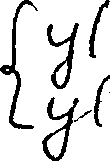 { y(
y(